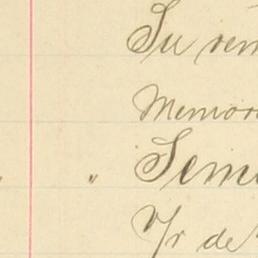 Su rem
Memor
" " Sem
V/r de